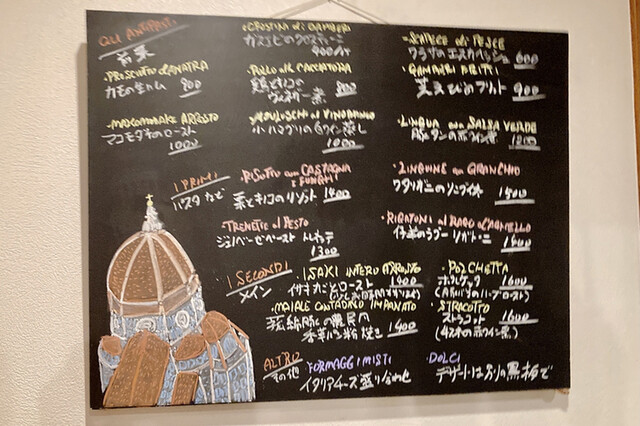 GLI ANTIPASTI
前菜
・PROSCIUTTO d'ANATRA
カモの生ハム 900
・MAKOMODAKE ARROSTO
マコモダケのロースト
1000
・CROSTINI di GAMBERI
ガスエビのクロスティーニ
・POLLO alla CACCIATORA
鶏ときのこの
ヴィネガー煮 800
・MOLLUSCHI al VINOBIANCO
小ハマグリの白ワイン蒸し
1000
・SCAPECE di PESCE
ワラサのエスカベッシュ 600
・GAMBERI FRITTI
芝えびのフリット
900
・LINGUA con SALSA VERDE
豚タンの
1200
I PRIMI
パスタ など
・RISOTTO con CASTAGNA
E FUNGHI
栗とキノコのリゾット 1400
・TRENETTE al PESTO
ジェノバペースト トレネッテ
1300
・LINGUINE con GRANCHIO
ワタリガニのリングイネ
1500
・RIGATONI al RAGU d'AGNELLO
仔羊のラグー リガトーニ
1600
I SECONDI
メイン
・ISAKI INTERO ARROSTO
イサキ丸ごとロースト 1400
・MAIALE CONTADINO IMPANATO
豚の農民風
香草パン粉焼き 1400
・PORCHETTA
ポルケッタ 1600
・STRACOTTO
ストラコット 1600
(牛スネの赤ワイン煮)
ALTRO
その他
・FORMAGGI MISTI
イタリアチーズ盛り合わせ
・DOLCI
デザートは別の黒板で